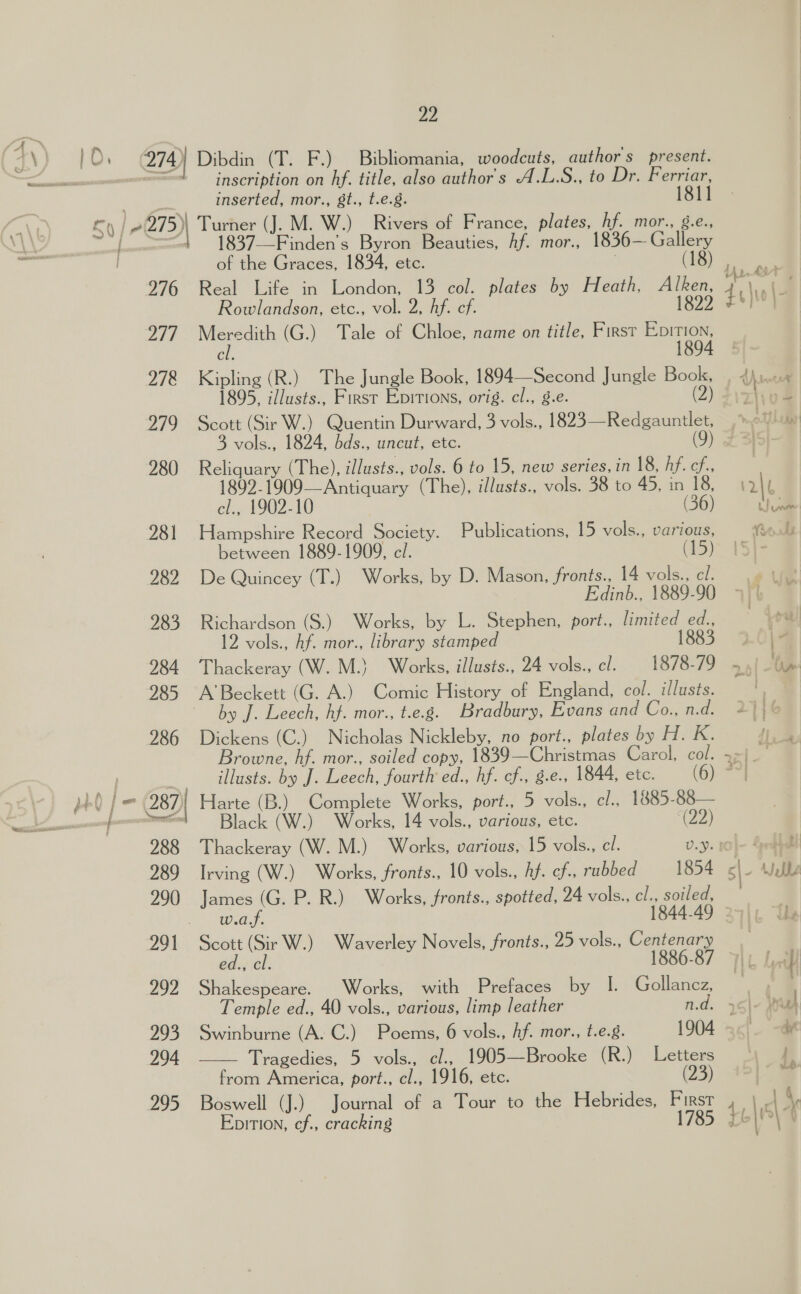 22
274 Dibdin (T. F.) Bibliomania, woodcuts, author's present.
inscription on hf. title, also author's A.L.S., to Dr. Ferriar,
inserted, mor., gt., t.e.g. 1811
275 Turner (J. M. W.) Rivers of France, plates, hf. mor., g.e.,
1837—Finden's Byron Beauties, hf. mor., 1836—Gallery
of the Graces, 1834, etc. (18)
276 Real Life in London, 13 col. plates by Heath, Alken,
Rowlandson, etc., vol. 2, hf. cf. 1822
277 Meredith (G.) Tale of Chloe, name on title, First Edition,
cl. 1894
278 Kipling (R.) The Jungle Book, 1894—Second Jungle Book,
1895, illusts., First Editions, orig. cl., g.e. (2)
279 Scott (Sir W.) Quentin Durward, 3 vols., 1823—Redgauntlet,
3 vols., 1824, bds., uncut, etc. (9)
280 Reliquary (The), illusts., vols. 6 to 15, new series, in 18, hf. cf.,
1892-1909—Antiquary (The), illusts., vols. 38 to 45, in 18,
cl., 1902-10 (36)
281 Hampshire Record Society. Publications, 15 vols., various,
between 1889-1909, cl. (15)
282 De Quincey (T.) Works, by D. Mason, fronts., 14 vols., cl.
Edinb., 1889-90
283 Richardson (S.) Works, by L. Stephen, port., limited ed.,
12 vols., hf. mor., library stamped 1883
284 Thackeray (W. M.) Works, illusts., 24 vols., cl. 1878-79
285 A'Beckett (G. A.) Comic History of England, col. illusts.
by J. Leech, hf. mor., t.e.g. Bradbury, Evans and Co., n.d.
286 Dickens (C.) Nicholas Nickleby, no port., plates by H. K.
Browne, hf. mor., soiled copy, 1839—Christmas Carol, col.
illusts. by J. Leech, fourth ed., hf. cf., g.e., 1844, etc. (6)
287 Harte (B.) Complete Works, port., 5 vols., cl., 1885-88—
Black (W.) Works, 14 vols., various, etc. (22)
288 Thackeray (W. M.) Works, various, 15 vols., cl. v.y.
289 Irving (W.) Works, fronts., 10 vols., hf. cf., rubbed 1854
290 James (G. P. R.) Works, fronts., spotted, 24 vols., cl., soiled,
w.a.f. 1844-49
291 Scott (Sir W.) Waverley Novels, fronts., 25 vols., Centenary
ed., cl. 1886-87
292 Shakespeare. Works, with Prefaces by I. Gollancz,
Temple ed., 40 vols., various, limp leather n.d.
293 Swinburne (A. C.) Poems, 6 vols., hf. mor., t.e.g. 1904
294 —— Tragedies, 5 vols., cl., 1905—Brooke (R.) Letters
from America, port., cl., 1916, etc. (23)
295 Boswell (J.) Journal of a Tour to the Hebrides, First
Edition, cf., cracking 1785